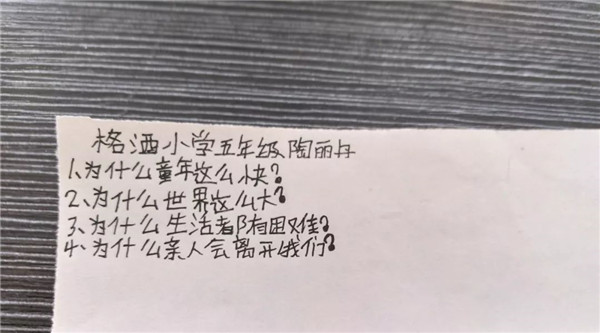 格洒小学五年级陶丽丹
1、为什么童年这么快?
2、为什么世界这么大?
3、为什么生活都有困难?
4、为什么亲人会离开我们?